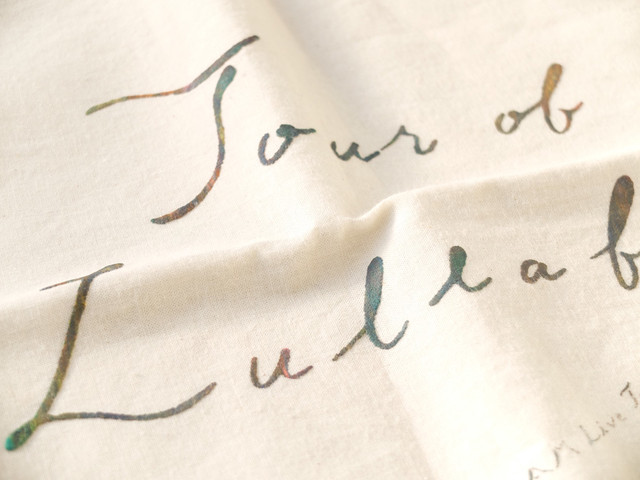 Tour ob
Lullab
Live